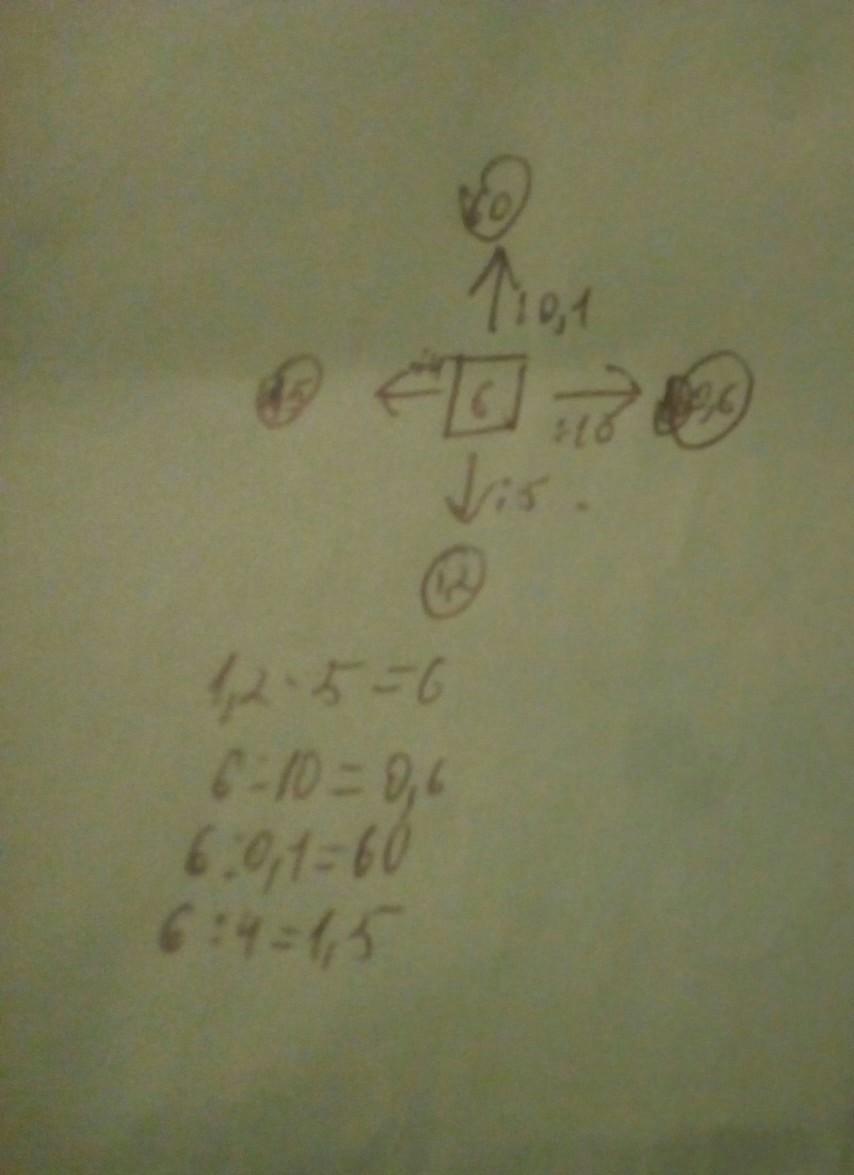 60
:0,1
1,5 :4 6 :10 0,6
:5
1,2
1,2 · 5 = 6
6 : 10 = 0,6
6 : 0,1 = 60
6 : 4 = 1,5